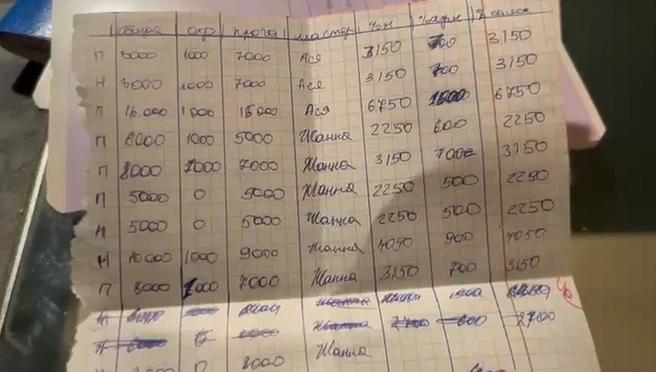 общая прога мастер % м % адм % салон
П 8000 1000 7000 Ася 3150 700 3150
Н 8000 1000 7000 Ася 3150 700 3150
П 16000 1000 15000 Ася 6750 1500 6750
П 6000 1000 5000 Жанна 2250 600 2250
П 8000 1000 7000 Жанна 3150 700 3150
П 5000 0 5000 Жанна 2250 500 2250
Н 5000 0 5000 Жанна 2250 500 2250
Н 10000 1000 9000 Жанна 4050 900 4050
П 8000 1000 7000 Жанна 3150 700 3150
0 Жанна